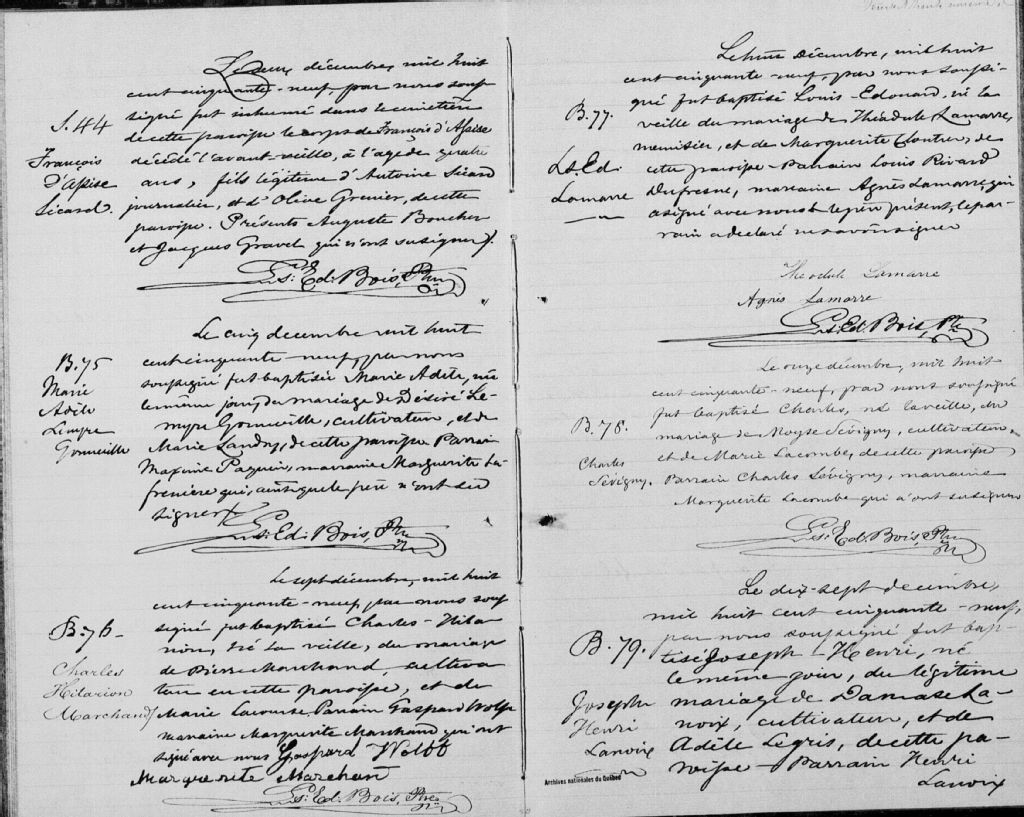 S. 44
François
d'Assise
Sicard.
Le deux décembre, mil huit
cent cinquante-neuf, par nous sous-
signé fut inhumé dans le cimetière
de cette paroisse le corps de François d'Assise
décédé l'avant-veille, à l'age de quatre
ans, fils légitime d'Antoine Sicard
journalier, et d'Olive Grenier, de cette
paroisse. Présents Auguste Boucher
et Jacques Gravel qui n'ont su signer.
Ls. Ed. Bois, Ptre
B. 75
Marie
Adèle
Lemyre
Gonneville
Le cinq decembre mil huit
cent cinquante-neuf, par nous
soussigné fut baptisée Marie Adèle, née
le même jour, du mariage de Désiré Le-
myre Gonneville, cultivateur, et de
Marie Landry, de cette paroisse. Parrain
Maxime Paquin, marraine Marguerite La-
frenière qui, ainsi que le père n'ont su
signer
Ls. Ed. Bois, Ptre
B. 76
Charles
Hilarion
Marchand
Le sept décembre, mil huit
cent cinquante-neuf, par nous sous-
signé fut baptisé Charles-Hila-
rion, né la veille, du mariage
de Pierre Marchand, cultiva
teur en cette paroisse, et de
Marie Lacourse. Parrain Gaspard Wolfe
maraine Marguerite Marchand qui ont
signé avec nous Gaspard Wolff
Marguerite Marchan
Ls. Ed. Bois, Ptre
B. 77.
Ls. Ed.
Lamarre
Le huit décembre, mil huit
cent cinquante-neuf, par nous soussi-
gné fut baptisé Louis-Edouard, né la
veille du mariage de Théodule Lamarre,
menuisier, et de Marguerite Cloutier, de
cette paroisse - Parrain Louis Rivard
Dufresne, marraine Agnès Lamarre, qui
a signé avec nous & le père présent, le par-
rain a déclaré ne savoir signer
Theodule Lamarre
Agnès Lamarre
Ls. Ed. Bois, Ptre
B. 78.
Charles
Sévigny.
Le onze décembre, mil huit
cent cinquante-neuf, par nous soussigné
fut baptisé Charles, né la veille, du
mariage de Moyse Sévigny, cultivateur,
et de Marie Lacombe, de cette paroisse,
Parrain Charles Sévigny, marraine
Marguerite Lacombe qui n'ont su signer
Ls. Ed. Bois, Ptre
B. 79.
Joseph
Henri
Lanoix
Le dix-sept decembre,
mil huit cent cinquante-neuf,
par nous soussigné fut bap-
tisé Joseph-Henri, né
le même jour, du légitime
mariage de Damase La-
noix, cultivateur, et de
Adèle Legris, de cette pa-
roisse - Parrain Henri
Lanoix
Archives nationales du Québec